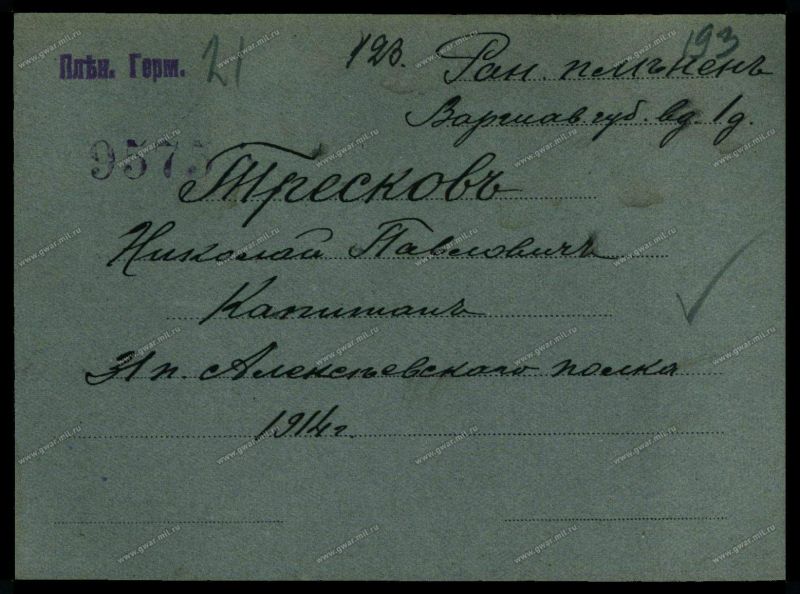 Плѣн. Герм. 21 123. Ран. плѣнен 193
Варшав губ. вд. 1 д.
9575
Тресковъ
Николай Павловичъ
Капитанъ
31 п. Алексѣевского полка
1914 г.
www.gwar.mil.ru